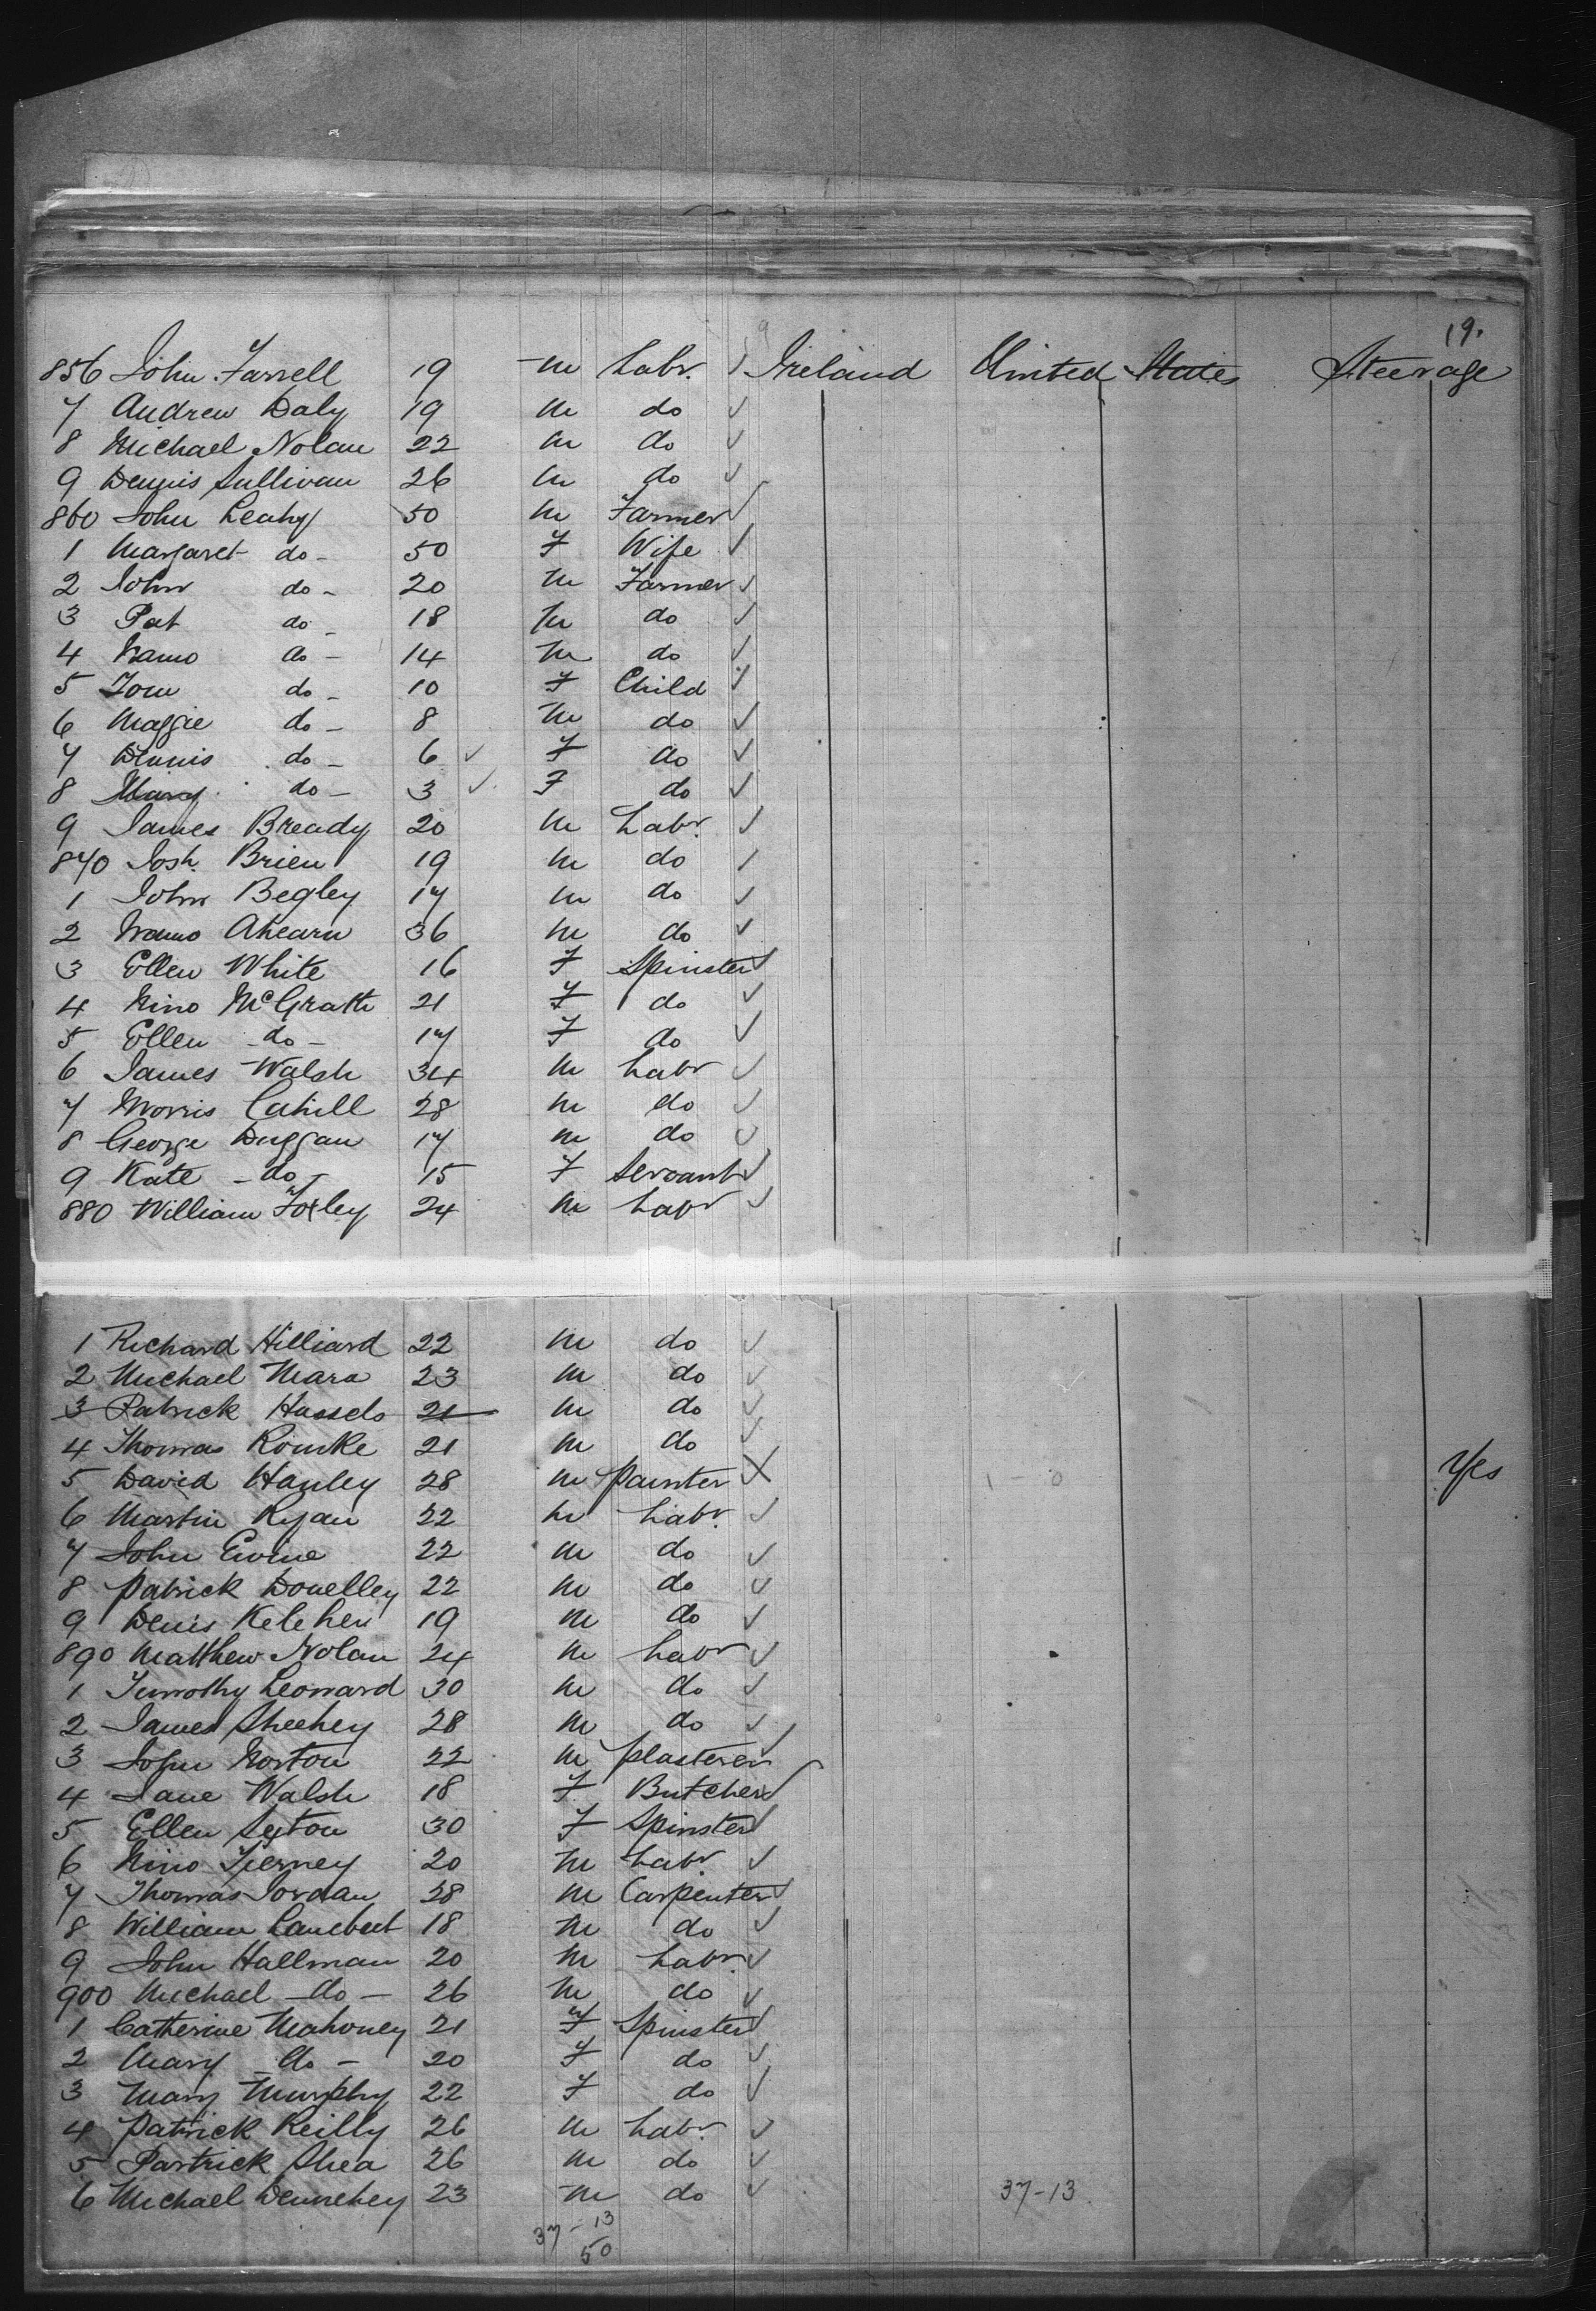 19.
856 John Farrell 19 m Labr. Ireland United States Steerage
7 Andrew Daly 19 m do
8 Michael Nolan 22 m do
9 Dennis Sullivan 26 m do
860 John Leahy 50 m Farmer
1 Margaret do - 50 F Wife
2 John do - 20 m Farmer
3 Pat do - 18 m do
4 do - 14 m do
5 Tom do - 10 F Child
6 Maggie do - 8 m do
7 Dennis do - 6 F do
8 Mary do - 3 F do
9 James Bready 20 m Labr.
870 Josh. Brien 19 m do
1 John Begley 17 m do
2 Ahearn 36 m do
3 Ellen White 16 F Spinster
4 McGrath 21 F do
5 Ellen - do - 17 F do
6 James Walsh 34 m Labr
7 Morris Cahill 28 m do
8 George Duggan 17 m do
9 Kate - do - 15 F Servant
880 William Foxley 24 m Labr
1 Richard Hilliard 22 m do
2 Michael Mara 23 m do
3 Patrick 21 m do
4 Thomas Rourke 21 m do
5 David Hanley 28 m Painter Yes
6 Martin Ryan 22 m Labr.
7 John 22 m do
8 Patrick Donelley 22 m do
9 Denis Keleher 19 m do
890 Matthew Nolan 24 m Labr
1 Timothy Leonard 30 m do
2 James Sheehey 28 m do
3 John Norton 22 m plasterer
4 Jane Walsh 18 F Butcher
5 Ellen Sexton 30 F Spinster
6 Tierney 20 m Labr.
7 Thomas Jordan 28 m Carpenter
8 William 18 m do
9 John Hallman 20 m Labr.
900 Michael - do - 26 m do
1 Catherine Mahoney 21 F Spinster
2 Mary - do - 20 F do
3 Mary Murphy 22 F do
4 Patrick Reilly 26 m Labr.
5 Partrick Shea 26 m do
6 Michael Dennehey 23 m do 37-13
37-13
50